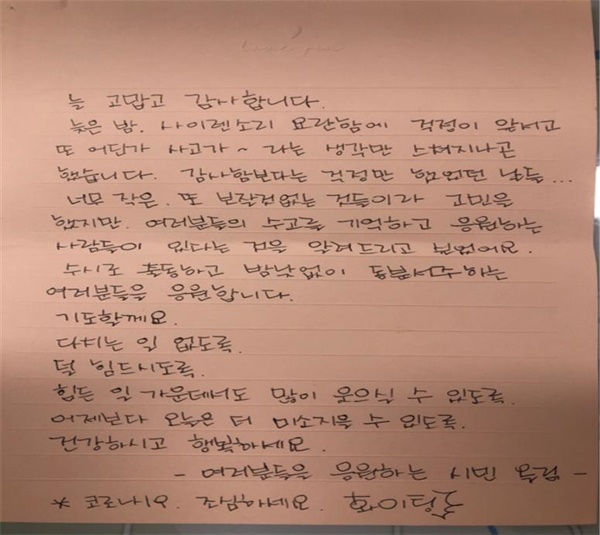 늘 고맙고 감사합니다.
늦은 밤. 사이렌소리 요란함에 걱정이 앞서고
또 어딘가 사고가~ 라는 생각만 스쳐지나곤
했습니다. 감사함보다는 걱정만 했었던 날들...
너무 작은. 또 보잘것없는 것들이라 고민을
했지만. 여러분들의 수고를 기억하고 응원하는
사람들이 있다는 것을 알려드리고 싶었어요.
수시로 출동하고 밤낮없이 동분서주하는
여러분들을 응원합니다.
기도할께요.
다치는 일 없도록.
덜 힘드시도록.
힘든 일 가운데서도 많이 웃으실 수 있도록.
어제보다 오늘은 더 미소지을 수 있도록.
건강하시고 행복하세요.
- 여러분들을 응원하는 시민 올림 -
* 코로나도. 조심하세요.